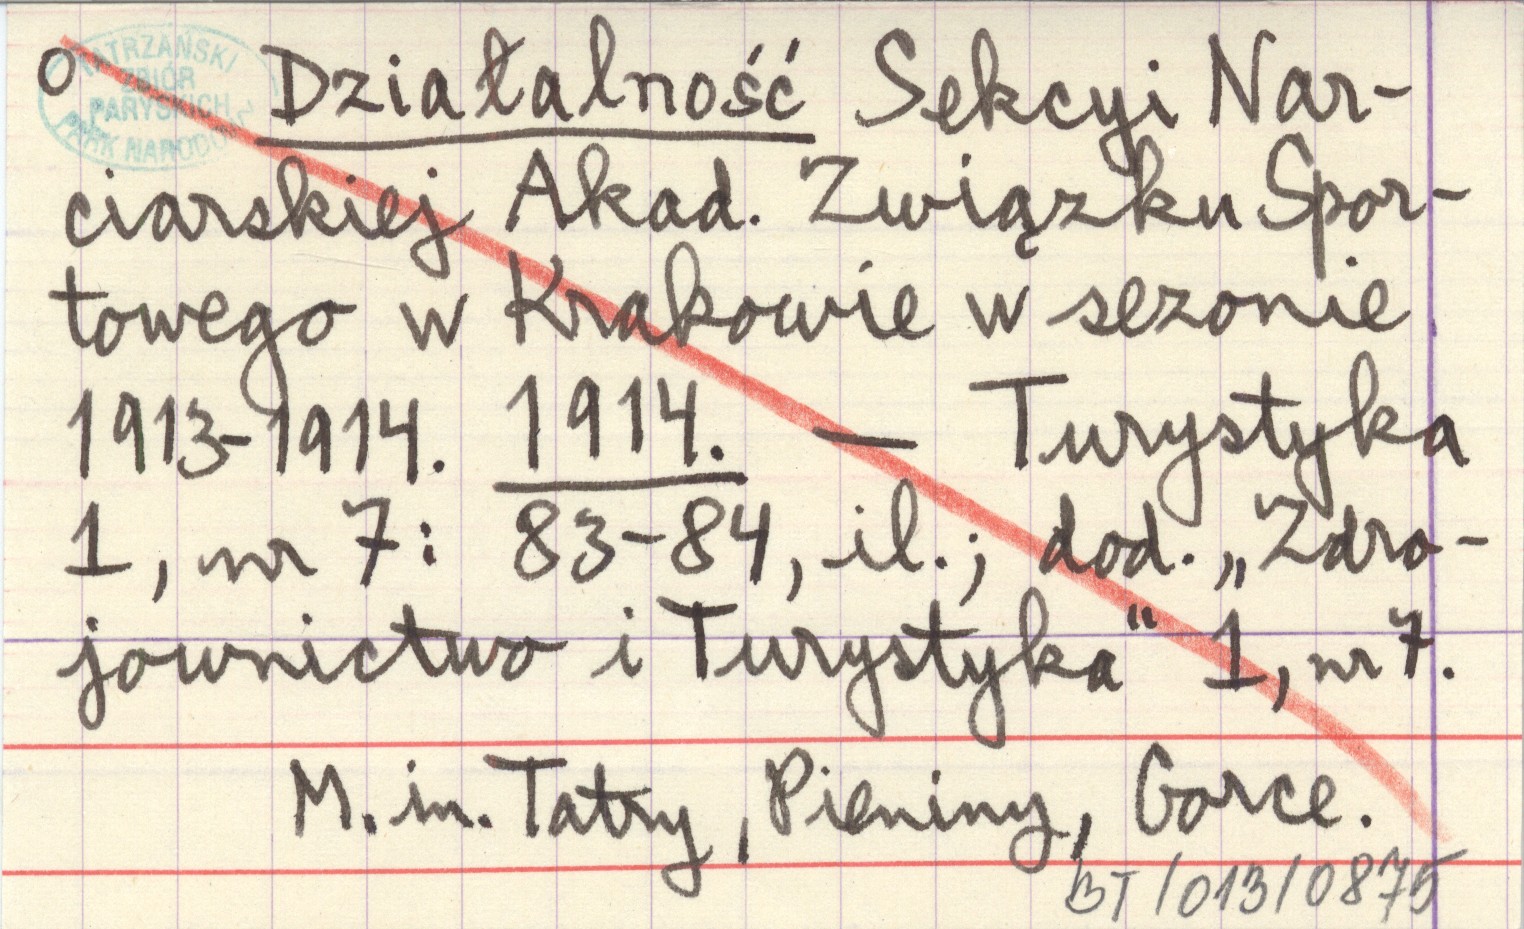 TATRZAŃSKI
ZBIÓR
PARYSKICH
PARK NARODOWY
o Działalność Sekcyi Nar-
ciarskiej Akad. Związku Spor-
towego w Krakowie w sezonie
1913-1914. 1914. — Turystyka
1, nr 7: 83-84, il.; dod. „Zdro-
jownictwo i Turystyka" 1, nr 7.
M. in. Tatry, Pieniny, Gorce.
BT/013/0875